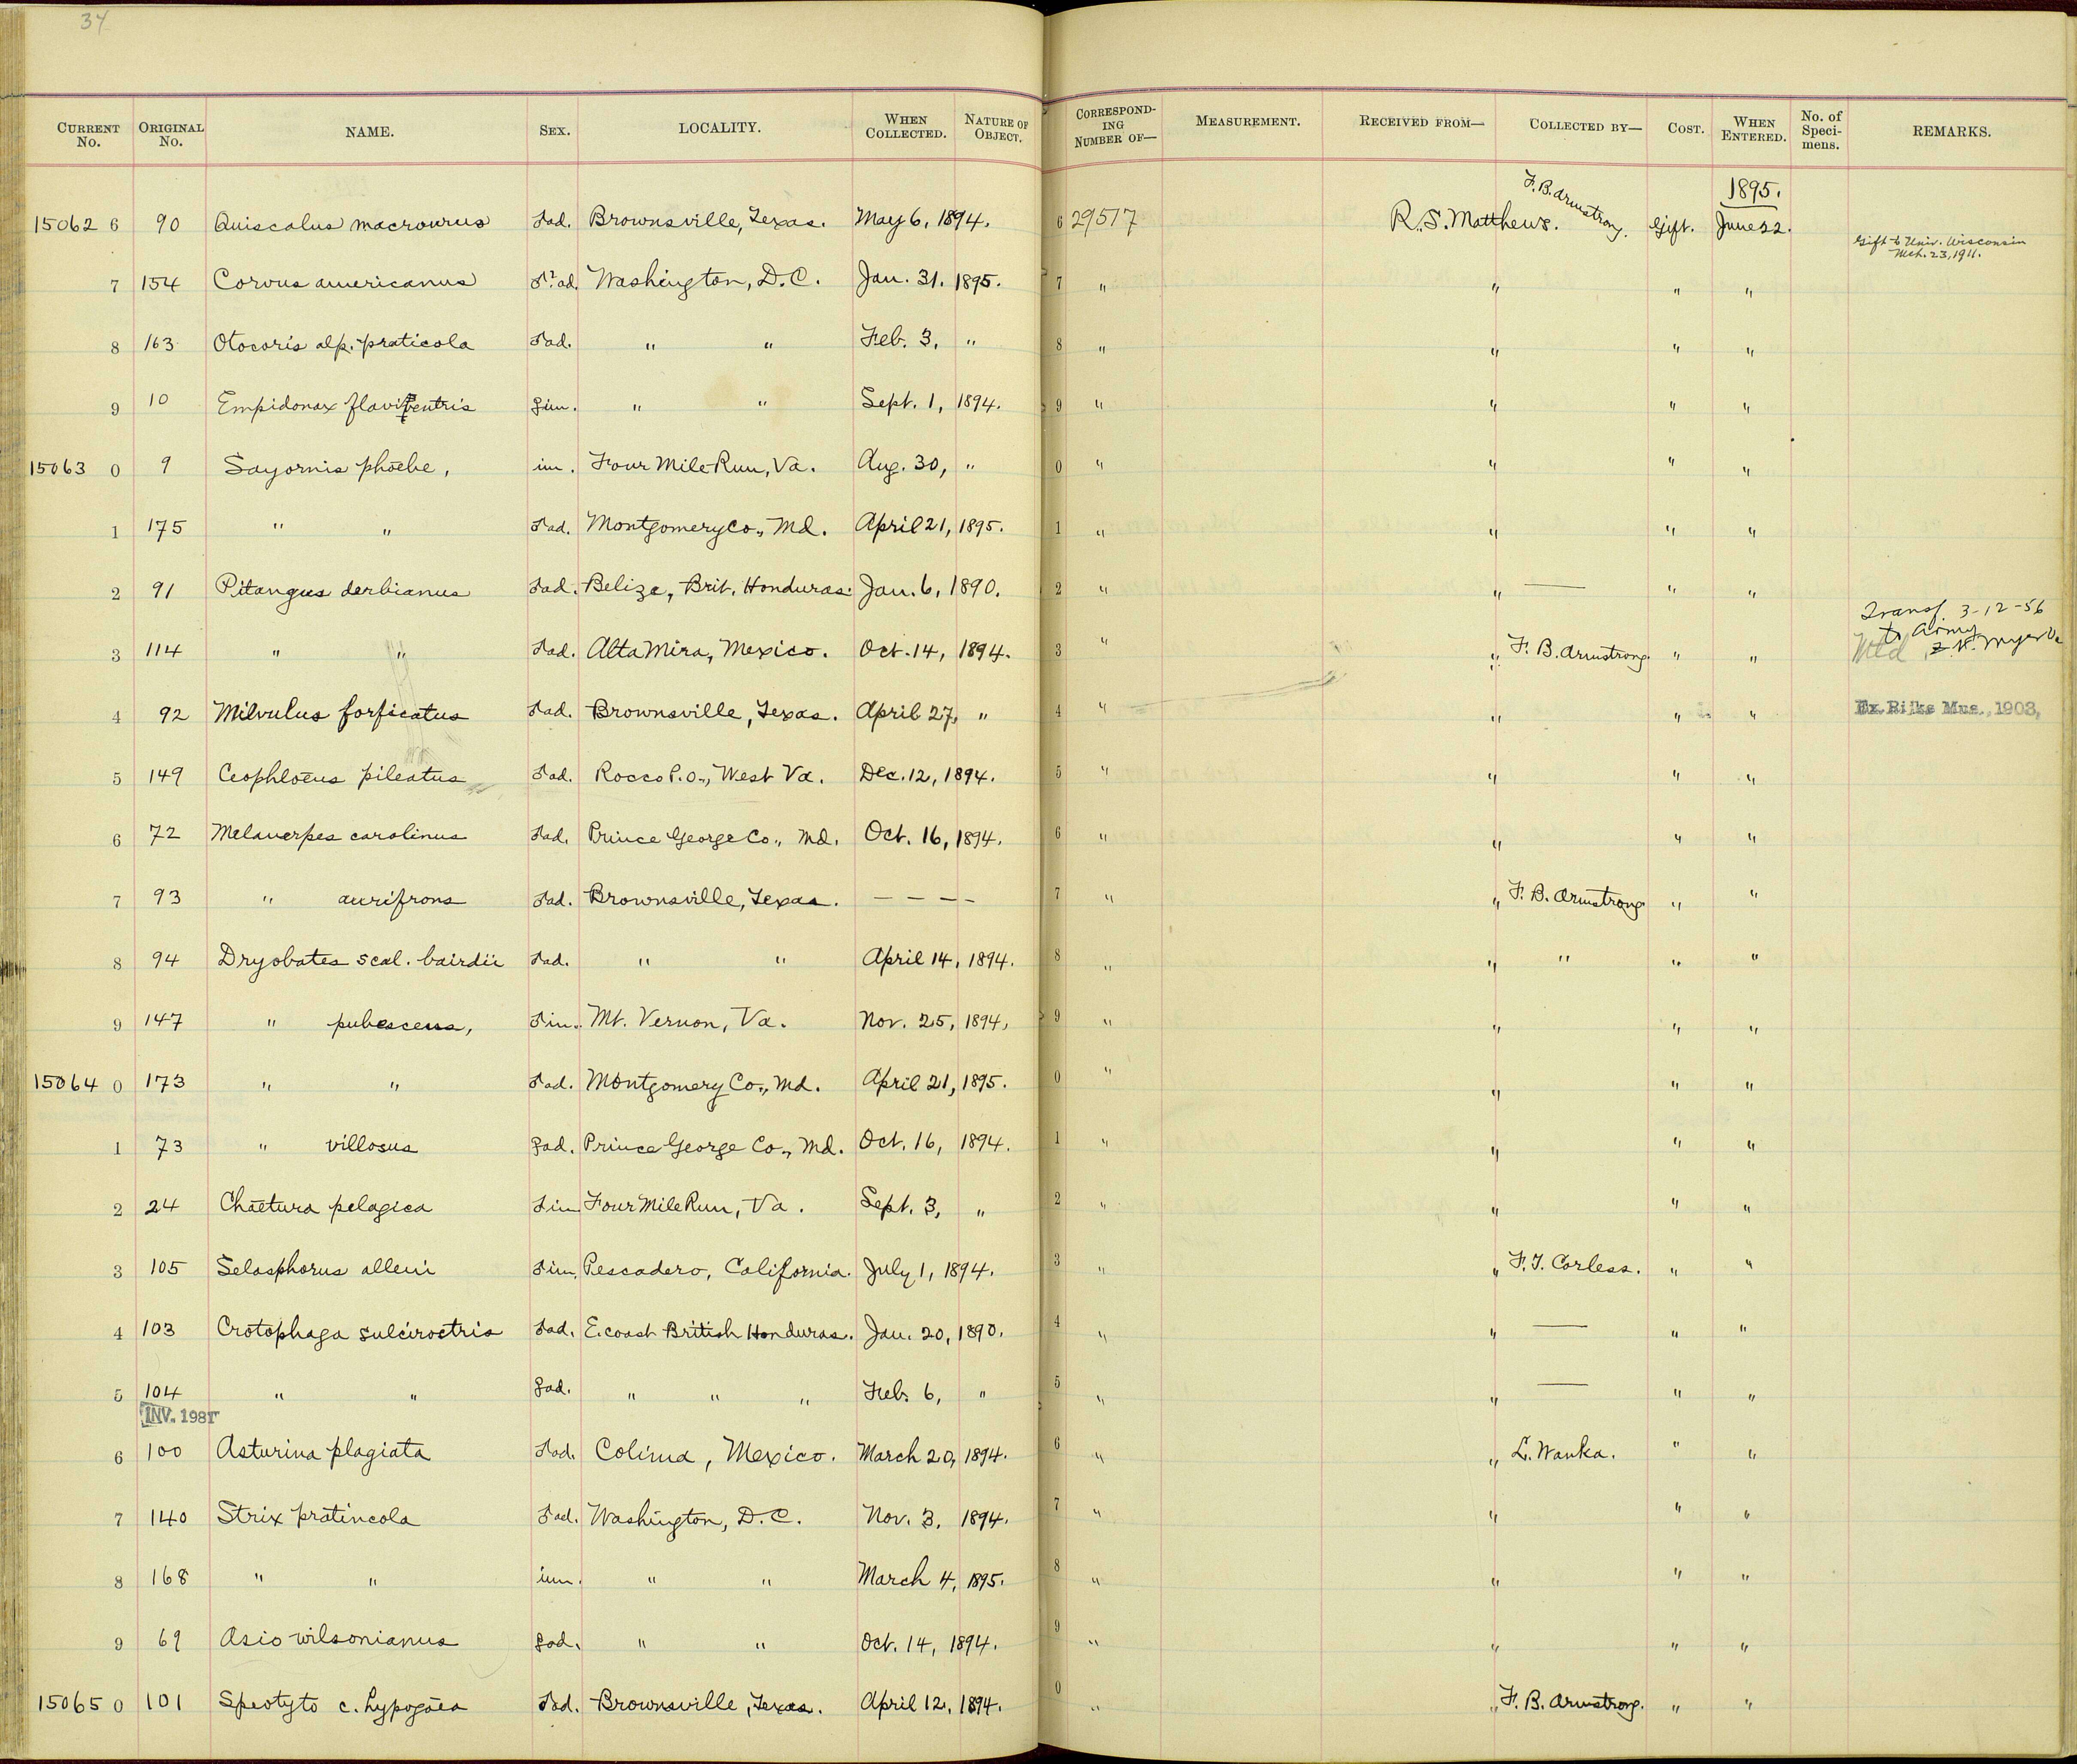 34
CURRENT No. ORIGINAL No. NAME. SEX. LOCALITY. WHEN COLLECTED. NATURE OF OBJECT. CORRESPOND-ING NUMBER OF— MEASUREMENT. RECEIVED FROM— COLLECTED BY— COST. WHEN ENTERED. No. of Speci-mens. REMARKS.
1895.
15062 6 90 Quiscalus macrourus ♂ad. Brownsville, Texas. May 6, 1894. 6 29517 R.S. Matthews. F.B. Armstrong. Gift. June 22. Gift to Univ. Wisconsin Mch. 23, 1911.
7 154 Corvus americanus ♂? ad. Washington, D.C. Jan. 31. 1895. 7 " " " "
8 163 Otocoris alp. praticola ♂ad. " " Feb. 3, " 8 " " " "
9 10 Empidonax flaviventris ♀im. " " Sept. 1, 1894. 9 " " " "
15063 0 9 Sayornis phoebe, im. Four Mile Run, Va. Aug. 30, " 0 " " " "
1 175 " " ♂ad. Montgomery Co., Md. April 21, 1895. 1 " " " "
2 91 Pitangus derbianus ♂ad. Belize, Brit. Honduras. Jan. 6, 1890. 2 " " — " "
3 114 " " ♂ad. Alta Mira, Mexico. Oct. 14, 1894. 3 " " F. B. Armstrong. " " Transf 3-12-56 to Army
4 92 Milvulus forficatus ♂ad. Brownsville, Texas. April 27, " 4 " " " " Ex. Riks Mus., 1903,
5 149 Ceophloeus pileatus ♂ad. Rocco P.O., West Va. Dec. 12, 1894. 5 " " " "
6 72 Melanerpes carolinus ♂ad. Prince George Co., Md. Oct. 16, 1894. 6 " " " "
7 93 " aurifrons ♂ad. Brownsville, Texas. — — — — 7 " " F. B. Armstrong. " "
8 94 Dryobates scal. bairdii ♂ad. " " April 14, 1894. 8 " " " " "
9 147 " pubescens, ♂im. Mt. Vernon, Va. Nov. 25, 1894, 9 " " " "
15064 0 173 " " ♂ad. Montgomery Co., Md. April 21, 1895. 0 " " " "
1 73 " villosus ♀ad. Prince George Co., Md. Oct. 16, 1894. 1 " " " "
2 24 Chaetura pelagica ♂im Four Mile Run, Va. Sept. 3, " 2 " " " "
3 105 Selasphorus alleni ♂im. Pescadero, California. July 1, 1894. 3 " " F. T. Corless. " "
4 103 Crotophaga sulcirostris ♂ad. E. coast British Honduras. Jan. 20, 1890. 4 " " — " "
5 104 " " ♀ad. " " " Feb. 6, " 5 " " — " "
INV. 1981
6 100 Asturina plagiata ♂ad. Colima, Mexico. March 20, 1894. 6 " " L. Wanka. " "
7 140 Strix pratincola ♂ad. Washington, D.C. Nov. 3, 1894. 7 " " " "
8 168 " " im. " " March 4, 1895. 8 " " " "
9 69 Asio wilsonianus ♀ad. " " Oct. 14, 1894. 9 " " " "
15065 0 101 Speotyto c. hypogaea ♂ad. Brownsville, Texas. April 12, 1894. 0 " " F. B. Armstrong. " "